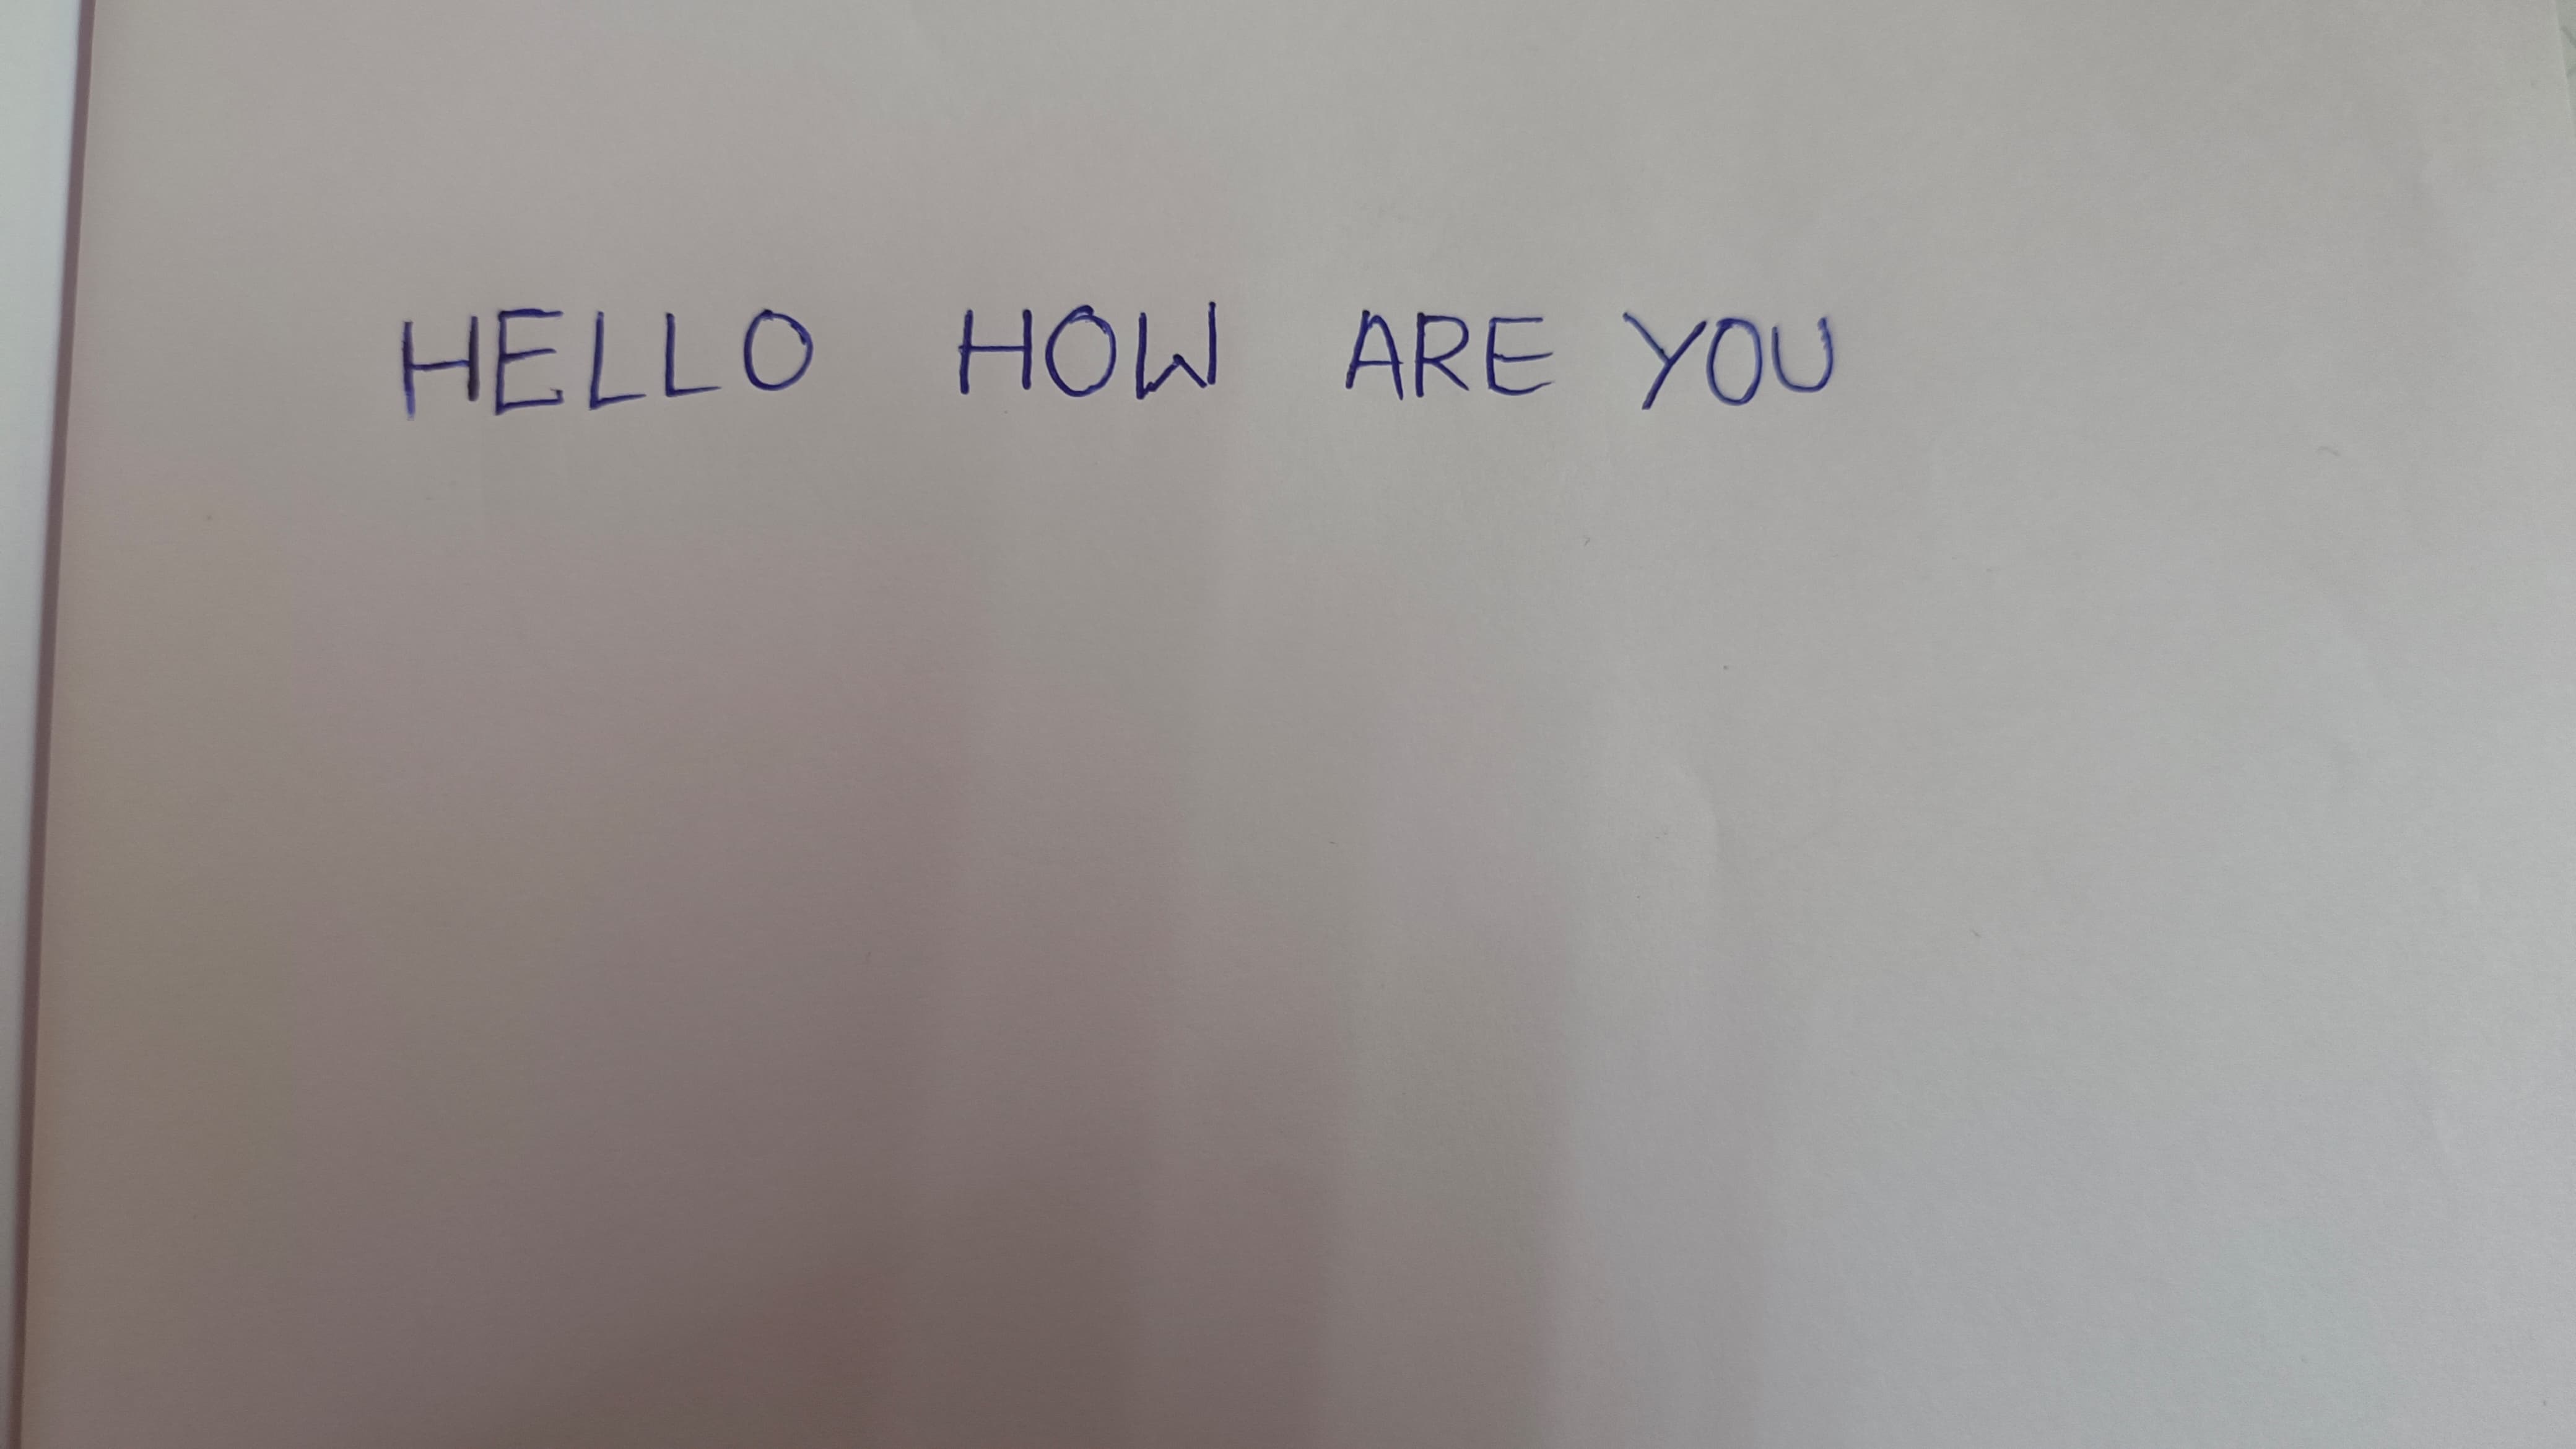 HELLO HOW ARE YOU